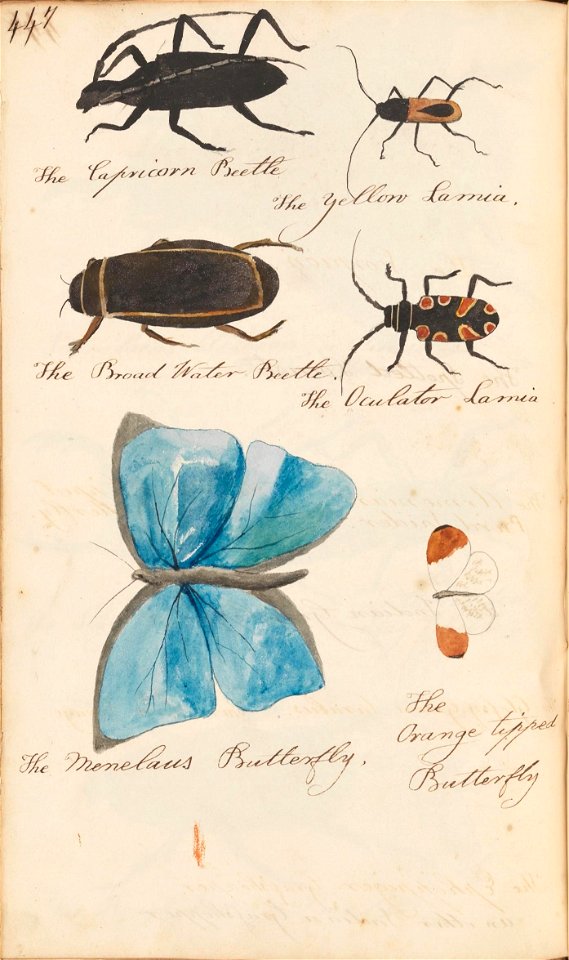 447
The Capricorn Beetle
The Yellow Lamia.
The Broad Water Beetle.
The Oculator Lamia
The Menelaus Butterfly.
The
Orange tipped
Butterfly